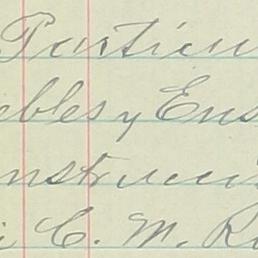 Particu
ebles y Ens
nstrucci
i C. M. R